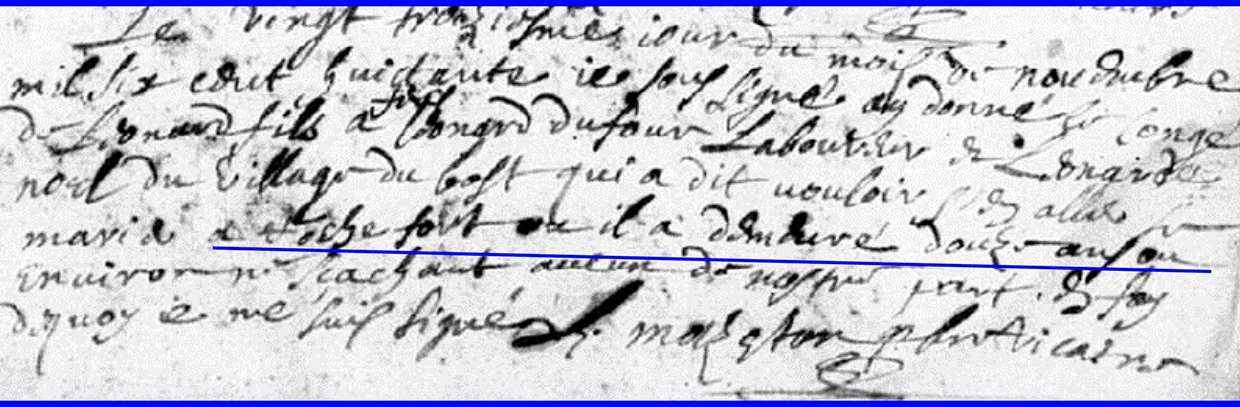 Le vingt troiziesme jour du mois de novembre
mil six cent huictante ie soubsigné ay donné le congé
de Leonard fils a feu Leonard dufour Laboureur & Leonarde
noel du village du bost qui a dit vouloir s'en aller se
marié a Rochefort ou il a demeuré douze ans ou
environ ne scachant aucun de nostre part en foy
dequoy ie me suis signé